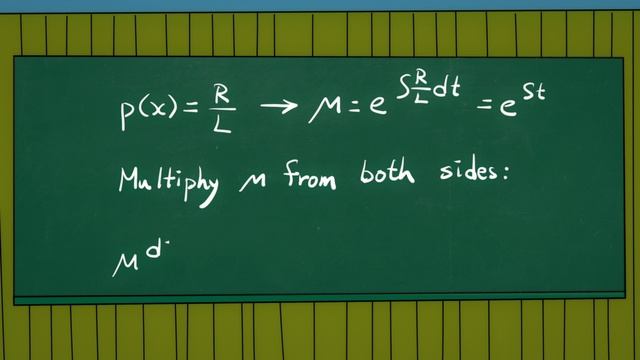 p(x) = R/L → μ = e^∫R/L dt = e^St
Multiphy μ from both sides:
μ d